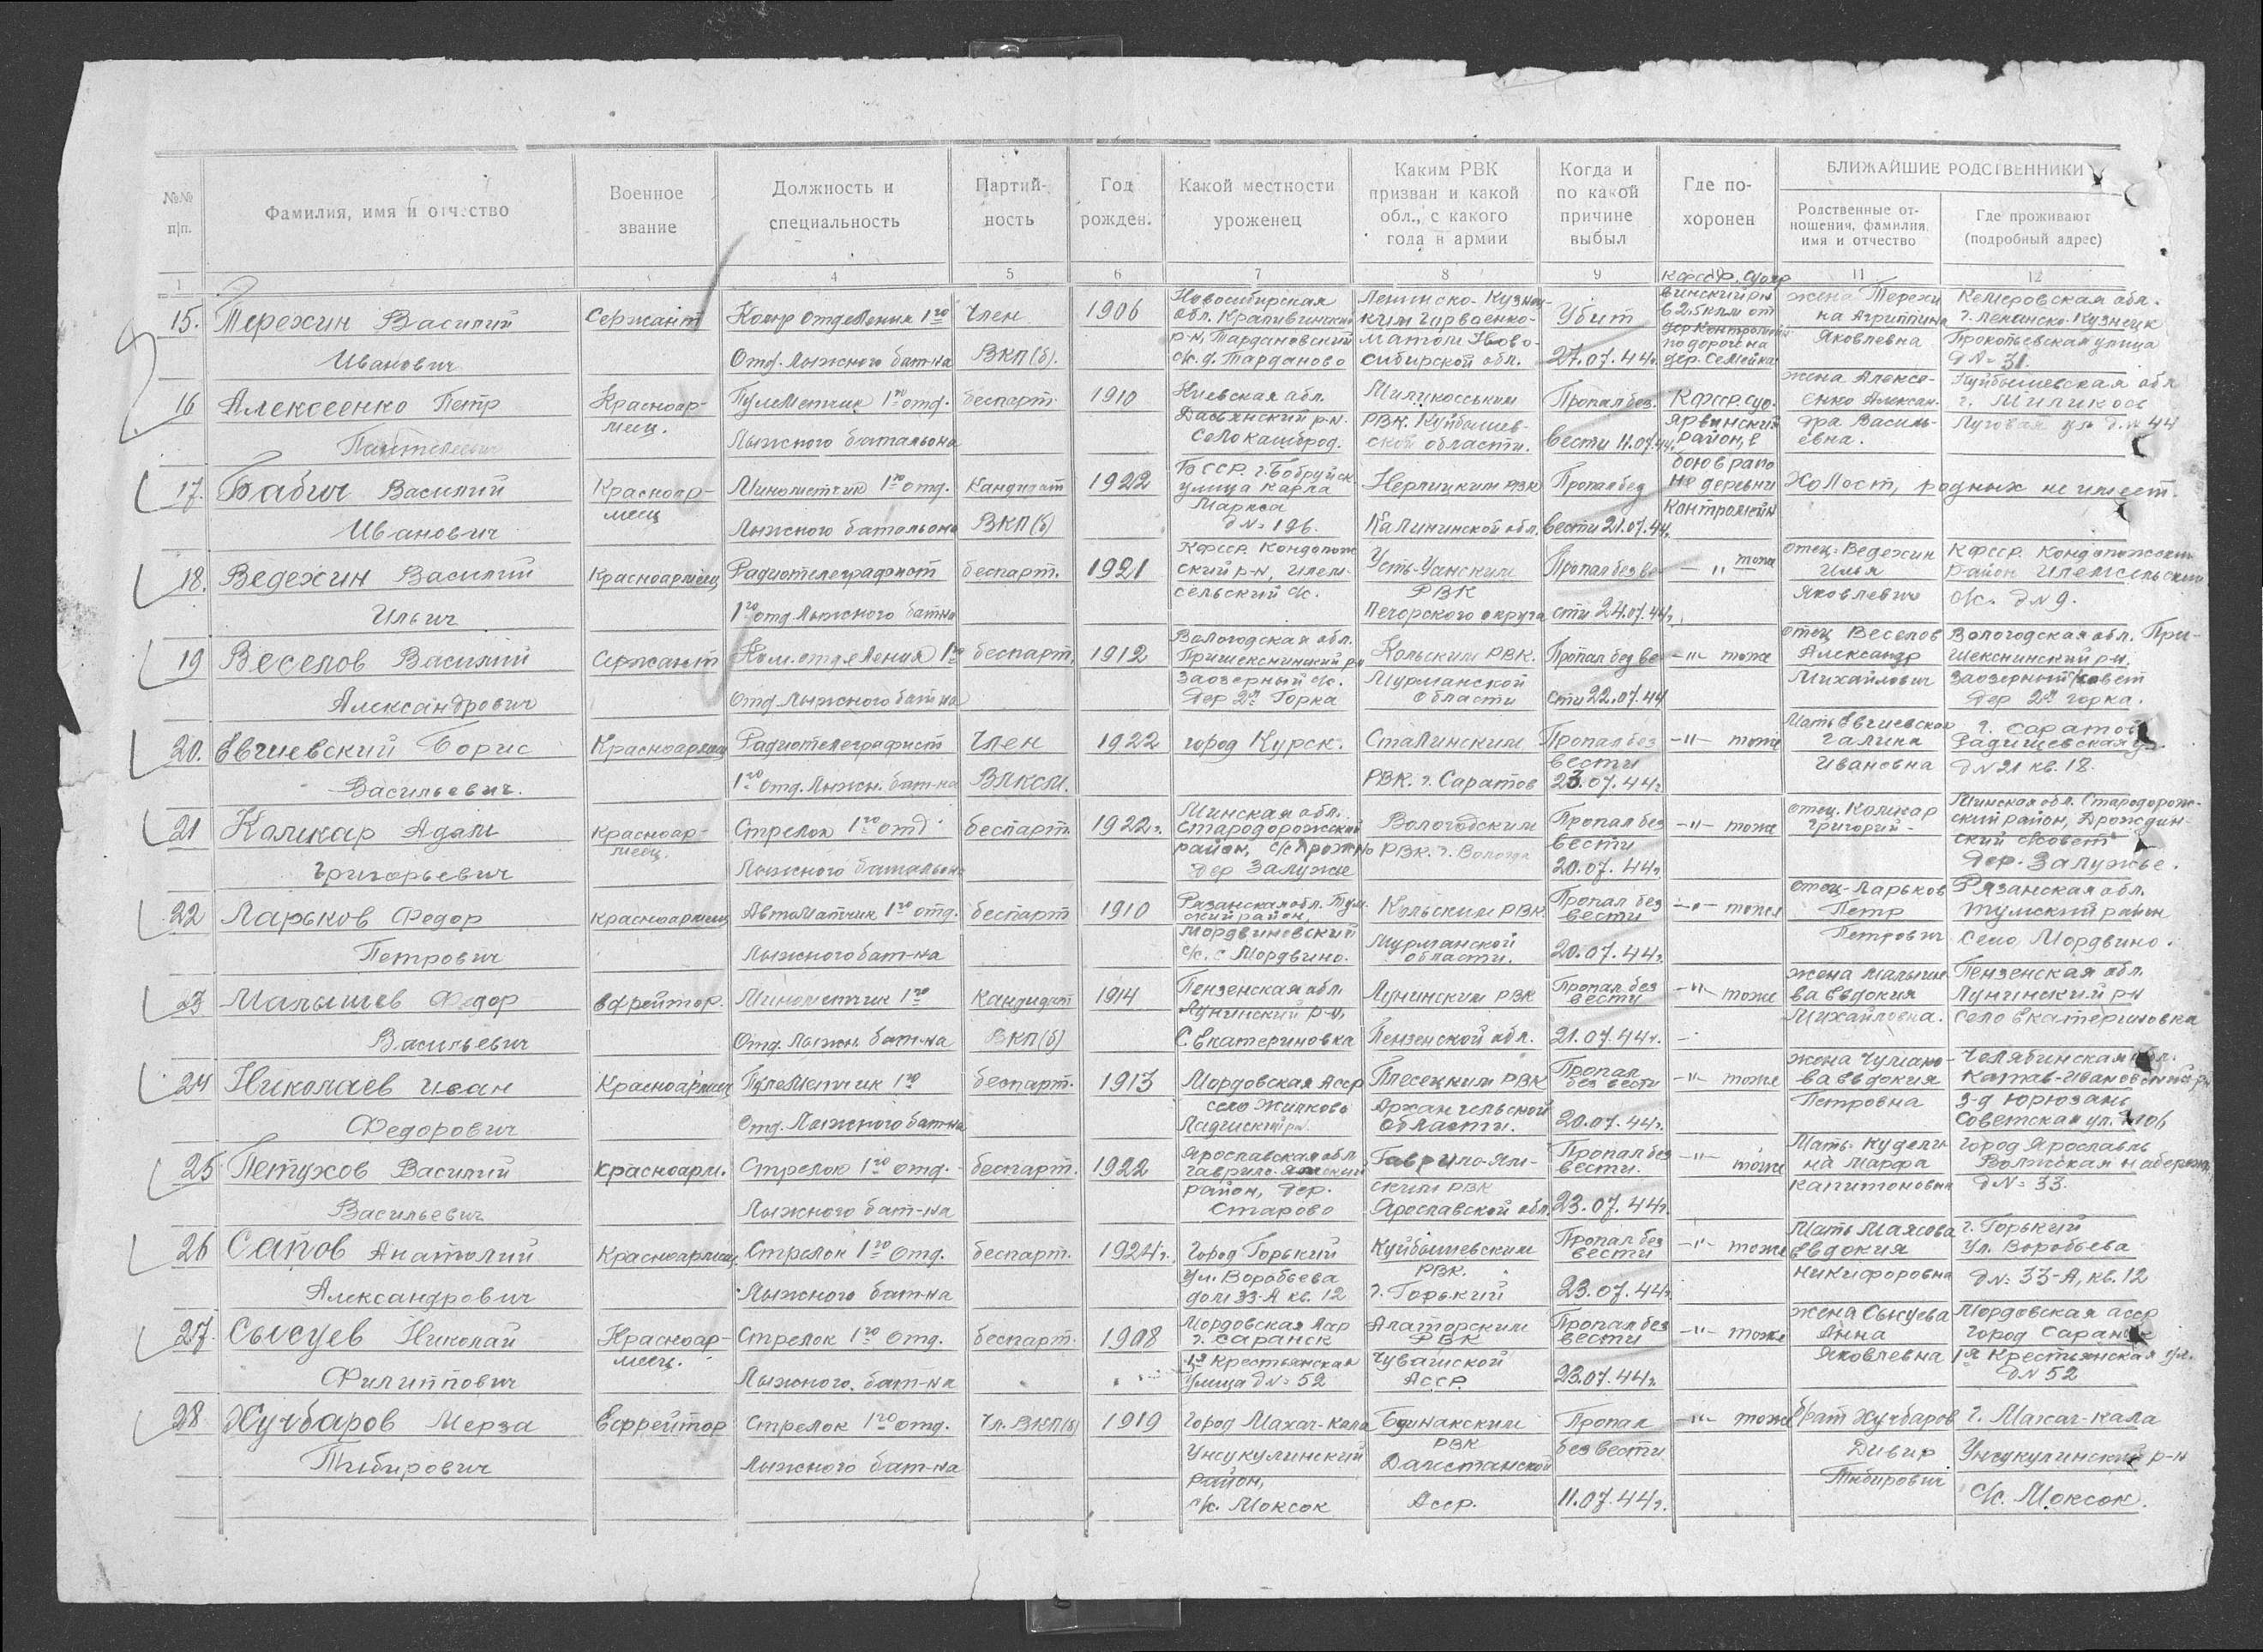 №№ п/п.
Фамилия, имя и отчество
Военное звание
Должность и специальность
Партий-ность
Год рожден.
Какой местности уроженец
Каким РВК призван и какой обл., с какого года в армии
Когда и по какой причине выбыл
Где по-хоронен
БЛИЖАЙШИЕ РОДСТВЕННИКИ
Родственные от-ношения, фамилия, имя и отчество
Где проживают (подробный адрес)
1 4 5 6 7 8 9 11 12
15. Терехин Василий Иванович
Сержант
Комр отделения 1го Отд. Лыжного бат-на
Член ВКП(б).
1906
Новосибирская обл. Крапивинский р-н, Тардановский с/с. д. Тарданово
Ленинско-Кузнец-ким Горвоенко-матом Ново-сибирской обл.
Убит 27.07.44г.
в 2,5 клм от по дороге на дер.
жена Терехи на Агриппина Яковлевна
Кемеровская обл. г. Ленинско-Кузнецк Прокопьевская улица д№ 31.
16 Алексеенко Петр Пантелеевич
Красноар-меец.
Пулеметчик 1го отд. Лыжного батальона
беспарт.
1910
Киевская обл. р-н. село
РВК. Куйбышев-ской области.
Пропал без. вести 11.07.44г.
КФССР. Суо-ярвинский район, в бою в райо не деревни
жена Алексе-енко Алексан-дра Василь-евна.
Куйбышевская обл г. Луговая ул д.№ 44
17. Бабич Василий Иванович
Красноар-меец
Минометчик 1го отд. Лыжного батальона
Кандидат ВКП(б)
1922
БССР. г. Бобруйск. улица Карла Маркса д№ 196.
РВК Калининской обл.
Пропал без вести 21.07.44г.
Холост, родных не имеет.
18. Ведехин Василий Ильич
Красноармеец
Радиотелеграфист 1го отд. Лыжного бат-на
беспарт.
1921
КФССР. Кондопож ский р-н, сельский с/с.
Усть-Усинским РВК Печорского округа
Пропал без ве сти 24.07.44г.
—"— тоже
отец-Ведехин Илья Яковлевич
КФССР. Кондопожский район с/с. д№9.
19 Веселов Василий Александрович
Сержант
Ком. отделения 1го Отд. Лыжного бат на
беспарт.
1912
Вологодская обл. Пришекснинский р-н Заозерный с/с. Дер 2я Горка
Кольским РВК. Мурманской области
Пропал без ве сти 22.07.44
—"— тоже
отец Веселов Александр Михайлович
Вологодская обл. При-шекснинский р-н. Заозерный с/совет дер 2я горка.
20. Евгиевский Борис Васильевич.
Красноармеец
Радиотелеграфист 1го отд. Лыжн. бат-на
Член ВЛКСМ.
1922
город Курск.
Сталинским РВК. г. Саратов
Пропал без вести 23.07.44г
—"— тоже
Мать Евгиевская Галина Ивановна
г. Саратов Радищевская ул. д№21 кв. 18.
21 Комкар Адам Григорьевич
Красноар-меец.
Стрелок 1го отд. Лыжного батальона
беспарт.
1922г.
Минская обл. Стародорожский район, с/с Дрожно дер Залужье
Вологодским РВК. г. Вологда
Пропал без вести 20.07.44г.
—"— тоже
отец. Комкар Григорий-
Минская обл. Стародорож-ский район, ский с/совет дер. Залужье.
22 Ларьков Федор Петрович
Красноармеец
Автоматчик 1го отд. Лыжного бат-на
беспарт
1910
Рязанская обл. Тум. ский район, Мордвиновский с/с. с Мордвино.
Кольским РВК. Мурманской области.
Пропал без вести 20.07.44г.
—"— тоже
отец-Ларьков Петр Петрович
Рязанская обл. Тумский район Село Мордвино.
23 Малышев Федор Васильевич
ефрейтор.
Минометчик 1го Отд. Лыжн. бат-на
Кандидат ВКП(б)
1914
Пензенская обл Лунинский р-н, С. Екатериновка
Лунинским РВК Пензенской обл.
Пропал без вести 21.07.44г.
—"— тоже
жена Малыше ва Евдокия Михайловна.
Пензенская обл. Лунинский р-н Село Екатериновка
24 Николаев Иван Федорович
Красноармеец
Пулеметчик 1го Отд. Лыжного бат-на
беспарт.
1913
Мордовская Асср село Жилково
Плесецким РВК Архангельской области.
Пропал без вести 20.07.44г.
—"— тоже
жена Чумако-ва Евдокия Петровна
Челябинская обл. Катав-Ивановский р-н з-д Юрюзань Советская ул.
25 Петухов Василий Васильевич
Красноарм.
Стрелок 1го отд. Лыжного бат-на
беспарт.
1922
Ярославская обл Гаврило-Ямский район, дер. Старово
Гаврило-Ям-ским РВК Ярославской обл.
Пропал без вести. 23.07.44г.
—"— тоже
Мать-Кудели на Марфа Капитоновна
Город Ярославль Волжская набереж. д№ 33.
26 Сапов Анатолий Александрович
Красноармеец.
Стрелок 1го отд. Лыжного бат-на
беспарт.
1924г.
Город Горький Ул. Воробьева дом 33-А кв. 12
Куйбышевским РВК. г. Горький
Пропал без вести 23.07.44г.
—"— тоже
Мать Маясова Евдокия Никифоровна
г. Горький Ул. Воробьева д№ 33-А, кв. 12
27. Сысуев Николай Филиппович
Красноар-меец.
Стрелок 1го отд. Лыжного. бат-на
беспарт.
1908
Мордовская г. Саранск 1я Крестьянская улица д№ 52
Алаторским РВК Чувашской АССР
Пропал без вести 23.07.44г.
—"— тоже
жена Сысуева Анна Яковлевна
Мордовская асср город Саранск 1я Крестьянская ул. д№ 52
28 Хучбаров Мерза Тибирович
Ефрейтор
Стрелок 1го отд. Лыжного бат-на
Чл. ВКП(б)
1919
Город Махач-Кала Унсукулинский район, с/с. Моксок
РВК Дагестанской Асср.
Пропал без вести 11.07.44г.
—"— тоже
брат Хучбаров Дибир Тибирович
г. Махач-кала Унсукулинский р-н с/с. Моксок.